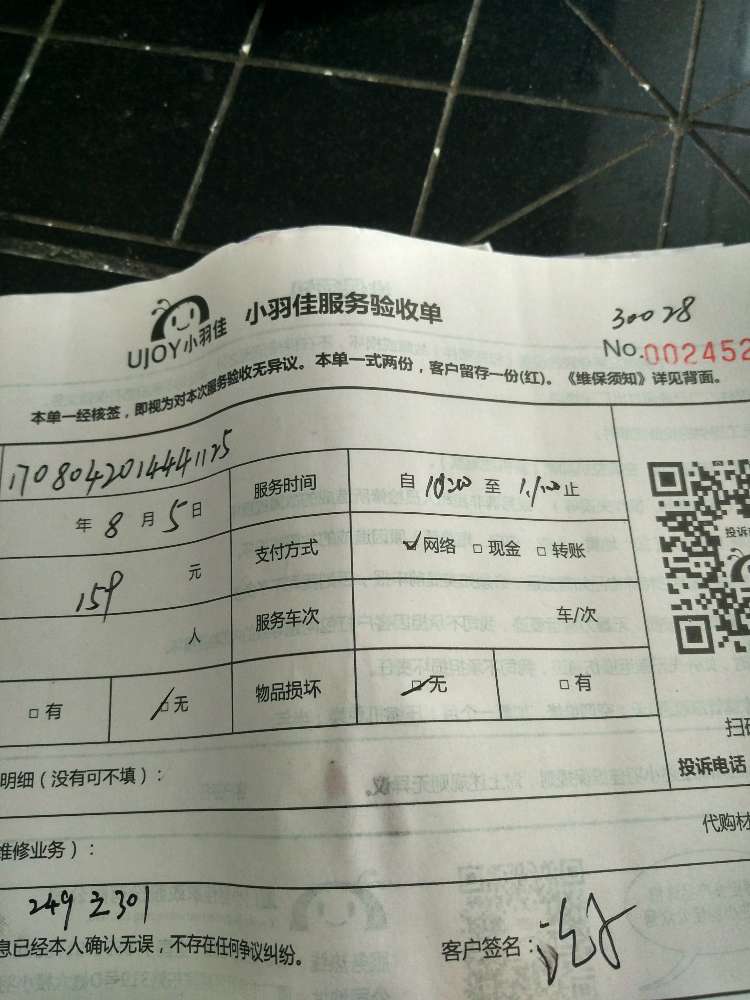 UJOY小羽佳 小羽佳服务验收单
30028
No.002452
本单一经核签，即视为对本次服务验收无异议。本单一式两份，客户留存一份(红)。《维保须知》详见背面。
1708042014441125 服务时间 自 10:00 至 11:00 止
年 8 月 5 日
支付方式 ☑网络 □现金 □转账
159 元
服务车次 车/次
人
□有 ☑无 物品损坏 ☑无 □有
投诉
扫码
明细（没有可不填）：
投诉电话
代购材
维修业务）：
249 301
息已经本人确认无误，不存在任何争议纠纷。 客户签名：